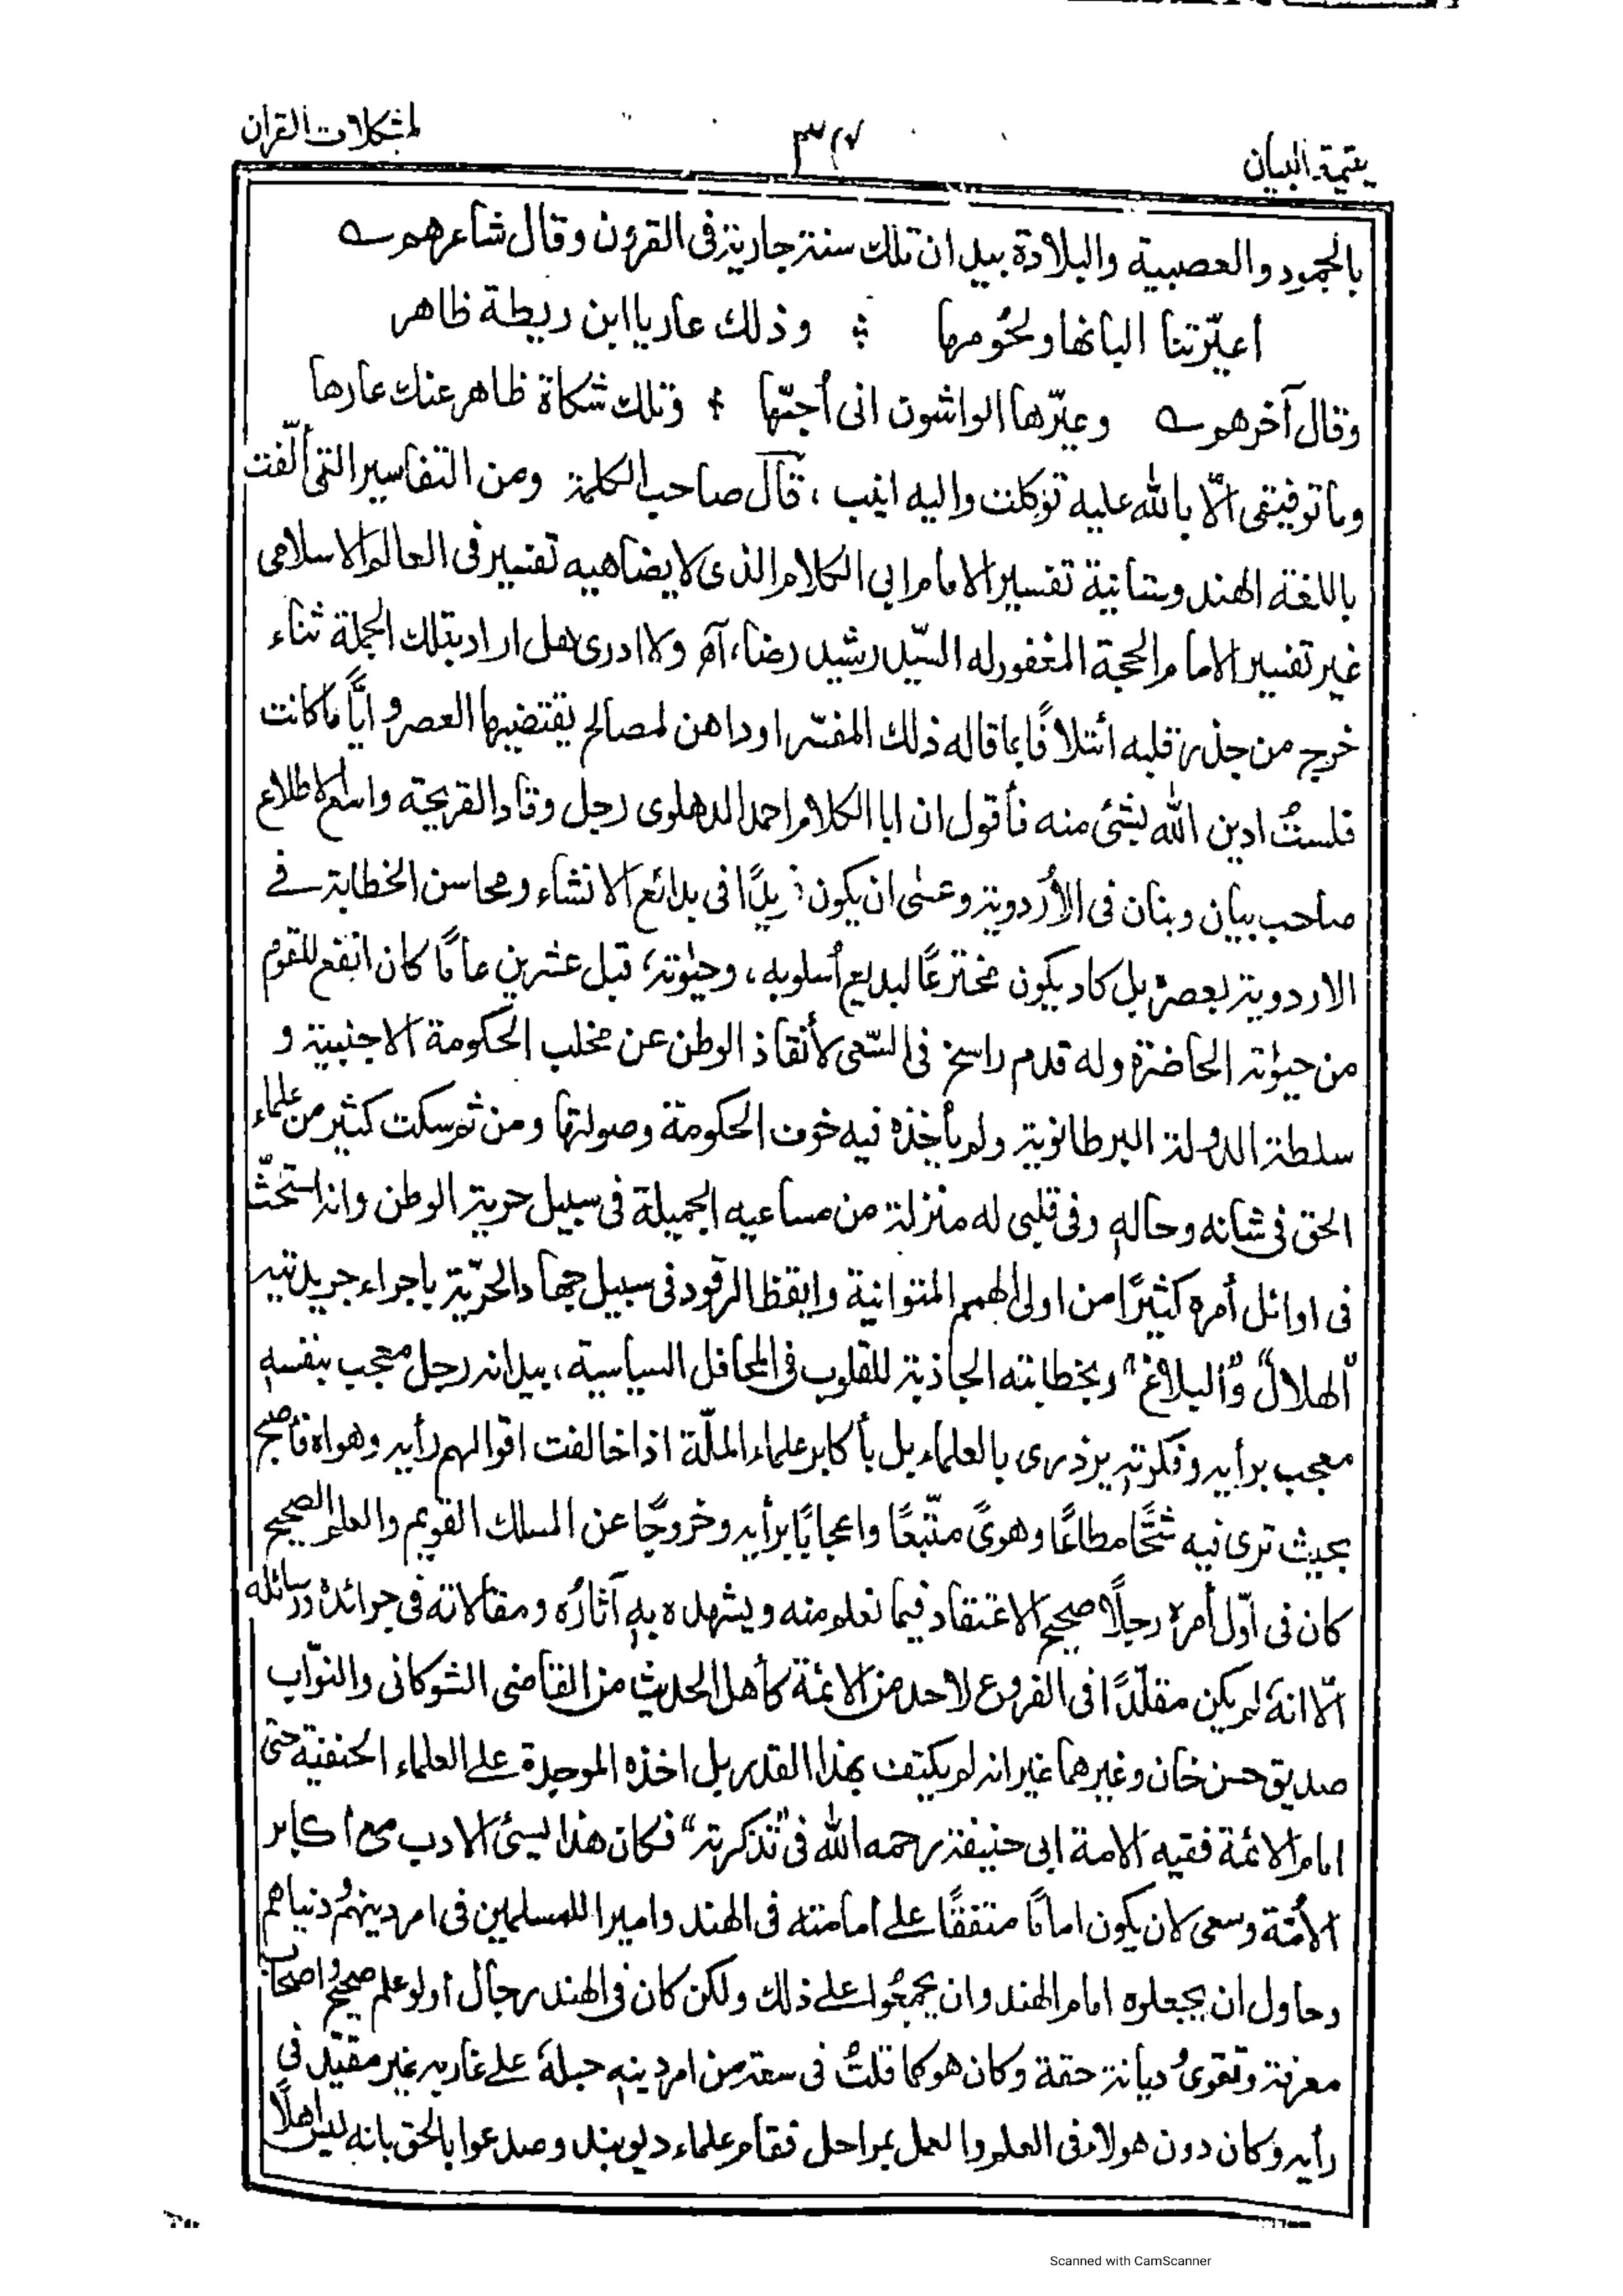 يتيمة البيان ٣٧ لمشكلات القران
بالجمود والعصبية والبلادة بيد ان تلك سنة جارية فى القرون وقال شاعرهم ؎
اعيّرتنا البانها ولحُومها ؞ وذلك عار يا ابن ريطة ظاهر
وقال آخرهم ؎ وعيّرها الواشون انى أُحبّها ؞ وتلك شكاة ظاهر عنك عارها
وما توفيقى الّا بالله عليه توكلت واليه انيب ، قال صاحب الكلمة ومن التفاسير التى ألّفت
باللغة الهندوستانية تفسير الامام ابى الكلام الذى لا يضاهيه تفسير فى العالم الاسلامى
غير تفسير الامام الحجة المغفور له السيّد رشيد رضا، آه ولا ادرى هل اراد بتلك الجملة ثناء
خرج من جذر قلبه أئتلافًا بما قاله ذلك المفسّر او داهن لمصالح يقتضيها العصر و ايًّا ما كانت
فلستُ ادين الله بشئ منه فأقول ان ابا الكلام احمد الدهلوى رجل وقاد القريحة واسع الاطلاع
صاحب بيان وبنان فى الأُردوية وعسٰى ان يكون فى بدائع الانشاء ومحاسن الخطابة فے
الاردوية بعصرهٖ بل كاد يكون مخترعًا لبديع أُسلوبه ، وحيٰوته قبل عشرين عامًا كان انفع للقوم
من حيٰوته الحاضرة وله قدم راسخ فى السّعى لأنقاذ الوطن عن مخلب الحكومة الاجنبية و
سلطة الدولة البرطانوية ولم يأخذه فيه خوف الحكومة وصولتها ومن ثم سكت كثير من علماء
الحق فى شانه وحالهٖ وفى قلبى له منزلة من مساعيه الجميلة فى سبيل حرية الوطن وانه استحثّ
فى اوائل أمره كثيرًا من اولى الهمم المتوانية وايقظ الرقود فى سبيل جهاد الحرّية باجراء جريدتيه
"الهلال" و"البلاغ" وبخطابته الجاذبة للقلوب فى المحافل السياسية ، بيد انه رجل معجب بنفسهٖ
معجب برأيه وفكرتهٖ يزدرى بالعلماء بل بأكابر علماء الملّة اذا خالفت اقوالهم رأيه وهواه فأصبح
بحيث ترى فيه شحًّا مطاعًا وهوىً متّبعًا واعجابًا برأيه وخروجًا عن المسلك القويم والعلم الصحيح
كان فى اوّل أمرهٖ رجلًا صحيح الاعتقاد فيما نعلم منه ويشهد ه بهٖ آثارُه ومقالاته فى جرائدهٖ ورسائله
الّا انهٗ لم يكن مقلّدًا فى الفروع لاحد من الائمة كأهل الحديث من القاضى الشوكانى والنوّاب
صديق حسن خان وغيرهما غير انه لم يكتف بهذا القدر بل اخذه الموجدة علے العلماء الحنفيّة حتى
امام الائمة فقيه الامة ابى حنيفة رحمه الله فى "تذكرته" فكان هذا يسئ الادب مع اكابر
الأُمّة وسعى لان يكون امامًا متفقًا علے امامته فى الهند واميرا للمسلمين فى امر دينهم ودنياهم
وحاول ان يجعلوه امام الهند وان يجمعُوا علے ذلك ولكن كان فى الهند رجال أولو علم صحيح واصحاب
معرفة وتقوىٰ وديانة حقة وكان هو كما قلتُ فى سعة من امر دينهٖ حبلهٗ علے غاربه غير مقيّد فى
رأيه وكان دون هولاء فى العلم والعمل بمراحل فقام علماء ديوبند وصدعوا بالحق بانه ليس اهلًا
Scanned with CamScanner